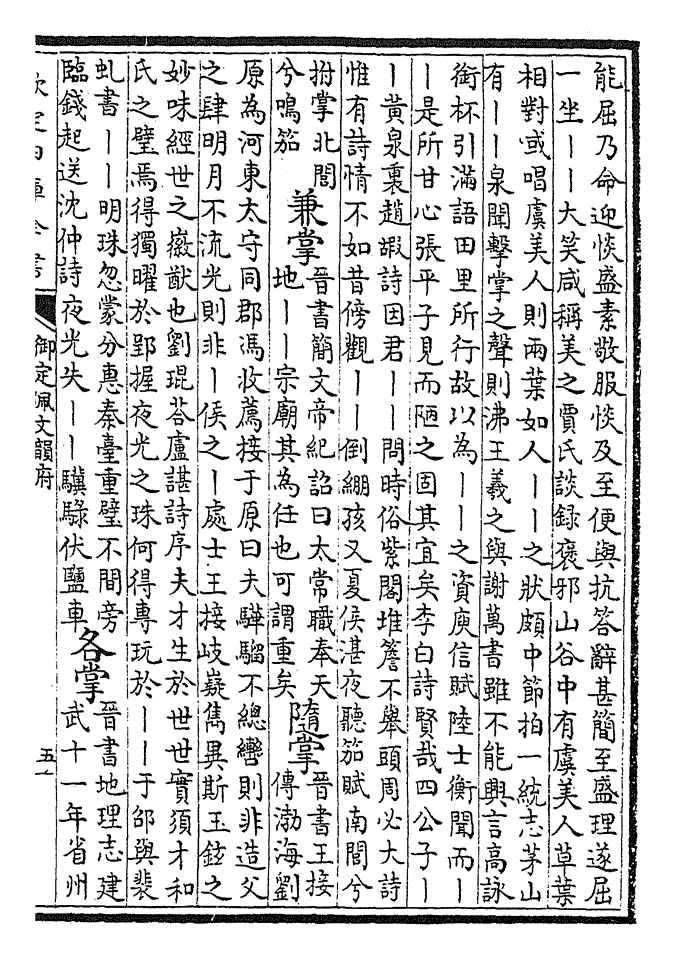 能屈乃命迎惔盛素敬服惔及至便與抗答辭甚簡至盛理遂屈
一坐丨丨大笑咸稱美之賈氏談録褒邪山谷中有虞美人草葉
相對或唱虞美人則兩葉如人丨丨之狀頗中節拍一統志茅山
有丨丨泉聞擊掌之聲則沸王羲之與謝萬書雖不能興言高詠
銜杯引滿語田里所行故以為丨丨之資庾信賦陸士衡聞而丨
丨是所甘心張平子見而陋之固其宜矣李白詩賢哉四公子丨
丨黄泉裏趙嘏詩因君丨丨問時俗紫閣堆簷不舉頭周必大詩
惟有詩情不如昔傍觀丨丨倒繃孩又夏侯湛夜聽笳賦南閭兮
拊掌北閭
兮鳴笳
兼掌
晉書簡文帝紀詔曰太常職奉天
地丨丨宗廟其為任也可謂重矣
隨掌
晉書王接
傳渤海劉
原為河東太守同郡馮收薦接于原曰夫驊騮不總轡則非造父
之肆明月不流光則非丨侯之丨處士王接岐嶷雋異斯玉鉉之
妙味經世之徽猷也劉琨荅盧諶詩序夫才生於世世實須才和
氏之璧焉得獨曜於郢握夜光之珠何得專玩於丨丨于邵與裴
虬書丨丨明珠忽蒙分惠秦臺重璧不間旁
臨錢起送沈仲詩夜光失丨丨驥騄伏鹽車
各掌
晉書地理志建
武十一年省州
欽定四庫全書
御定佩文韻府
五一